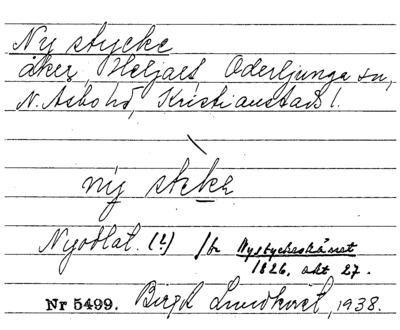 Ny stycke
åker, Heljalt, Oderljunga sn,
N. Åsbo hd, Kristianstads l.
nij steke
Nyodlat. (?) /br Nystyckeskärret
1826, akt 27.
Nr 5499. Birgit Lundkvist, 1938.